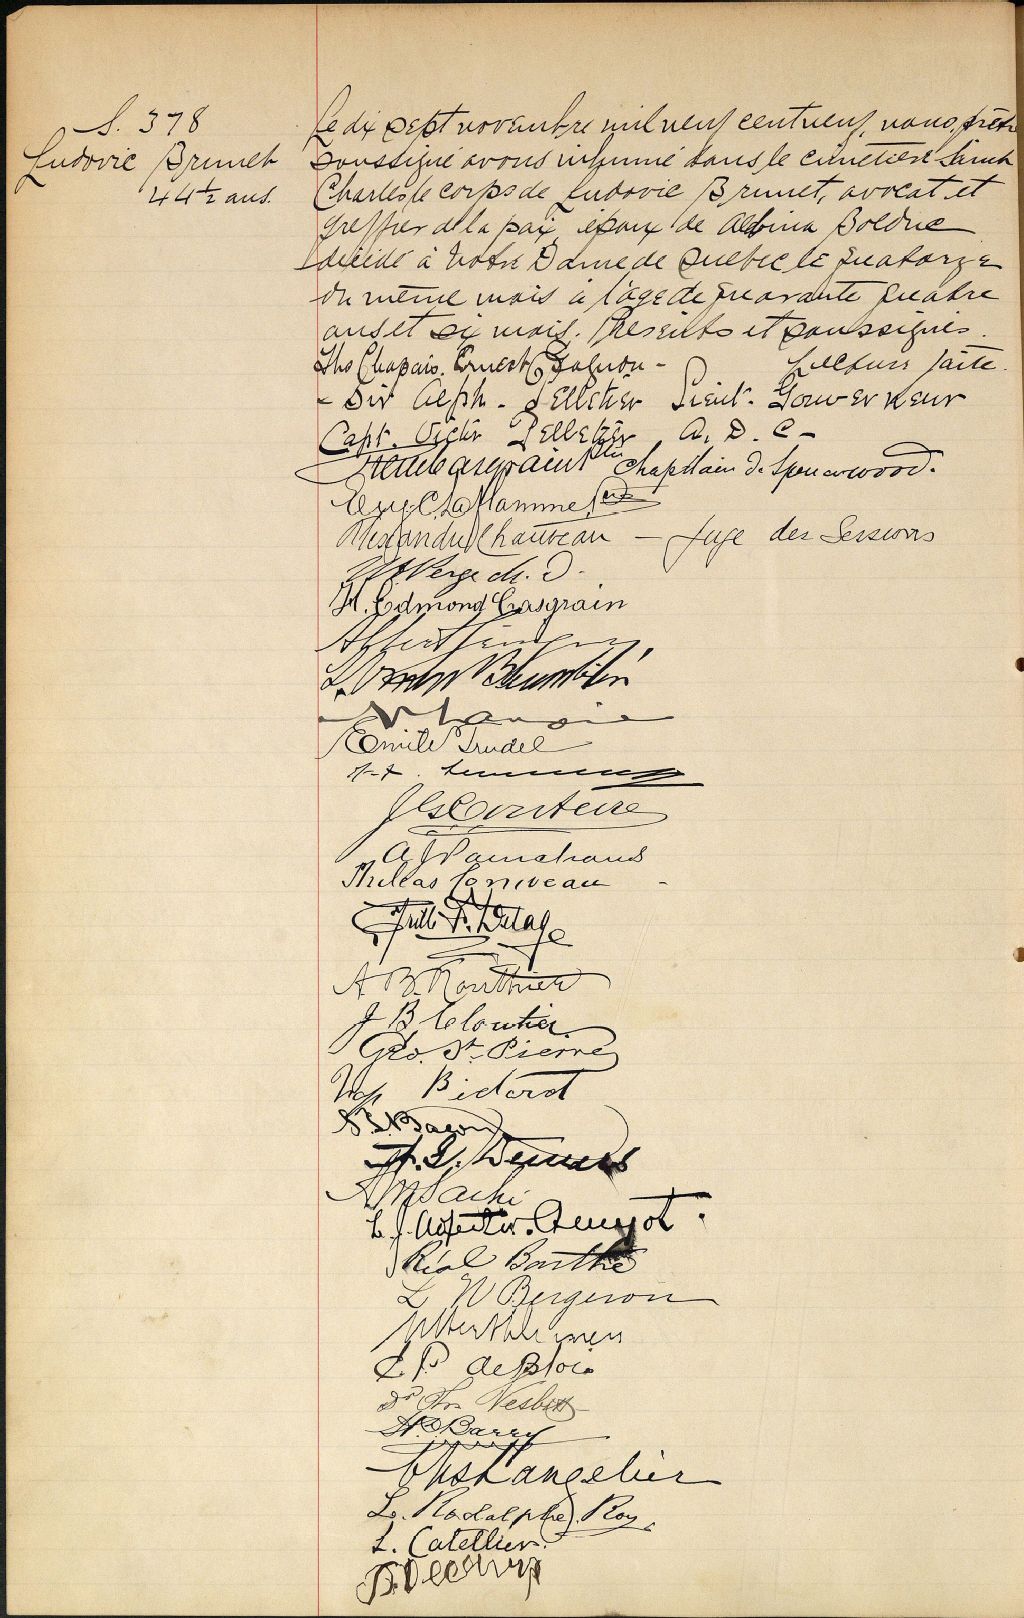 S. 378
Ludovic Brunet
44½ ans.
Le dix sept novembre mil neuf cent neuf, nous, prêtre
soussigné avons inhumé dans le cimetière Saint
Charles le corps de Ludovic Brunet, avocat et
greffier de la paix, époux de Albina Bolduc
décédé à Notre Dame de Québec le quatorze
du même mois à l'âge de quarante quatre
ans et six mois. Présents et soussignés.
Lecture faite.
Ths Chapais. Ernest Gagnon -
- Sir Alph. Pelletier Lieut. Gouverneur
Capt. Victor Pelletier A. D. C -
chapelain de Spencerwood.
Eug. C. Laflamme Ptre
Alexandre Chauveau - Juge des Sessions
Verge M. D.
H. Edmond Casgrain
Emile Trudel
Couture
Philéas Corriveau -
A B Routhier
J B Cloutier
Geo. St. Pierre
Nap Bédard
Bacon
Demers
Réal Barthe
L N Bergeron
de Blois
Dr Nesbitt
Barry
Chs Langelier
L. Rodolphe Roy
L. Catellier.